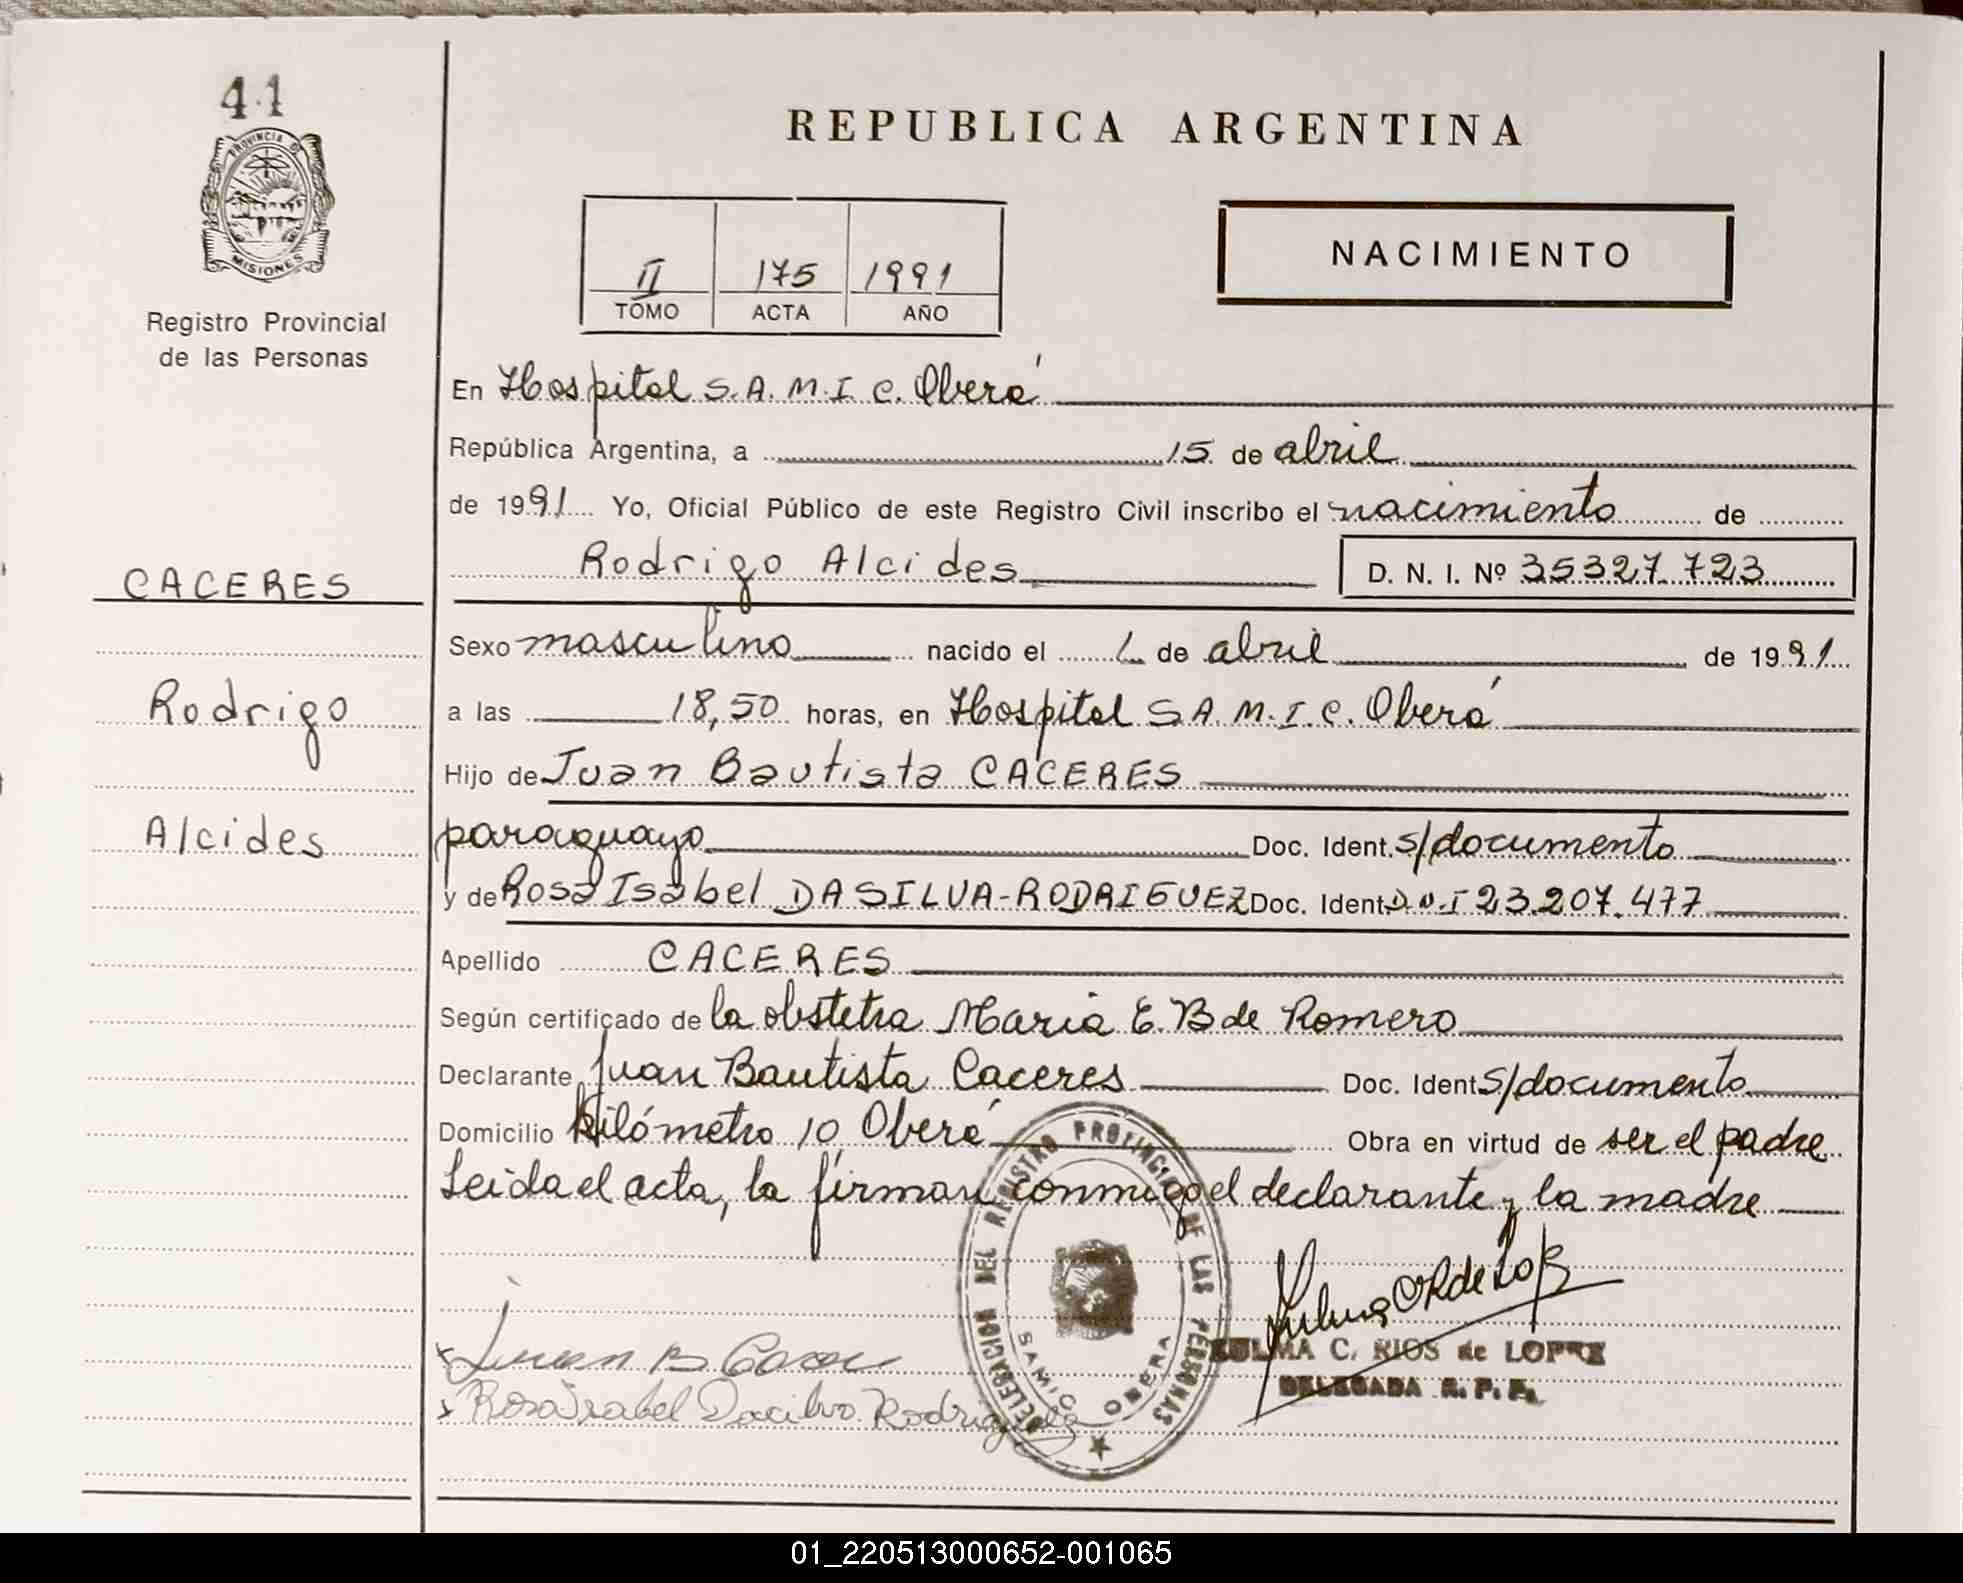 41
PROVINCIA DE
MISIONES
Registro Provincial
de las Personas
CACERES
Rodrigo
Alcides
REPUBLICA ARGENTINA
II 175 1991
TOMO ACTA AÑO
NACIMIENTO
En Hospital S.A.M.I.C. Oberá
República Argentina, a 15 de abril
de 1991 Yo, Oficial Público de este Registro Civil inscribo el nacimiento de
Rodrigo Alcides D. N. I. Nº 35327723
Sexo masculino nacido el 1 de abril de 1991
a las 18,50 horas, en Hospital S.A.M.I.C. Oberá
Hijo de Juan Bautista CACERES
paraguayo Doc. Ident. s/documento
y de Rosa Isabel DA SILVA-RODRIGUEZ Doc. Ident. D.N.I 23.207.477
Apellido CACERES
Según certificado de la obstetra Maria E. B de Romero
Declarante Juan Bautista Caceres Doc. Ident s/documento
Domicilio kilómetro 10 Oberá Obra en virtud de ser el padre
Leida el acta, la firman conmigo el declarante y la madre
DELEGACION DEL REGISTRO PROVINCIAL DE LAS PERSONAS
SAMIC OBERA
Juan B
Rosa Isabel Dacilva Rodriguez
ZULMA C. RIOS de LOPEZ
DELEGADA R. P. P.
01_220513000652-001065